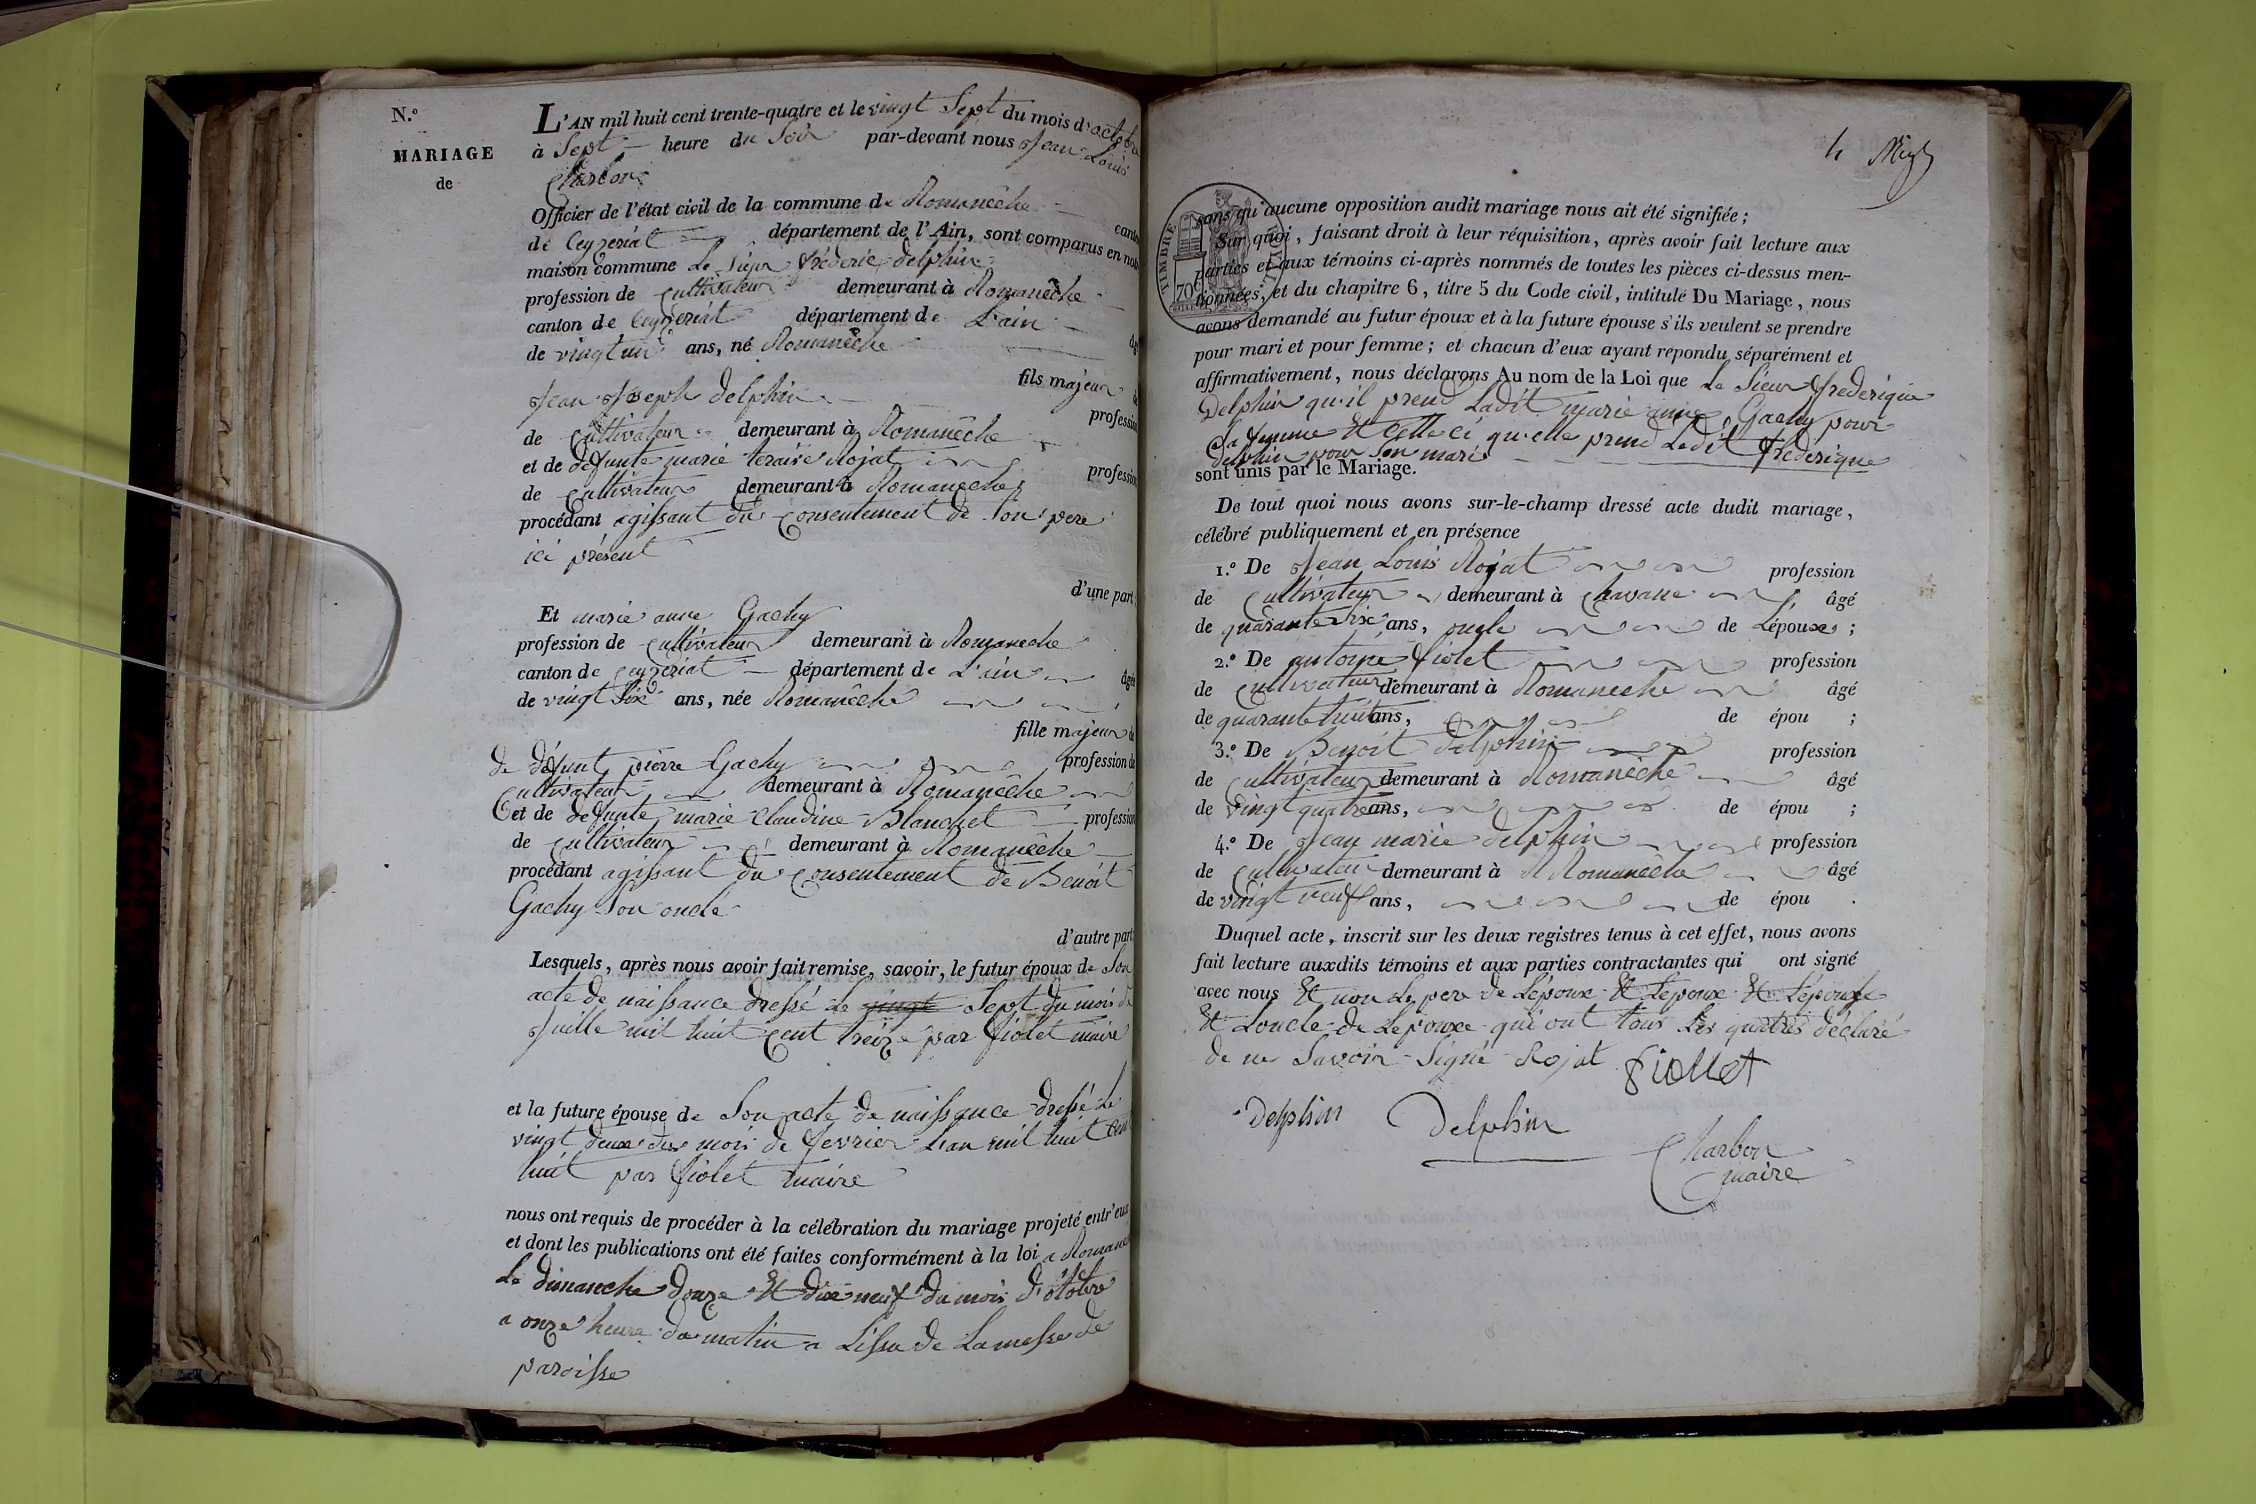 N.o
MARIAGE
de
L'AN mil huit cent trente-quatre et le vingt Sept du mois d'octobre
à Sept heure du Soir par-devant nous Jean Louis
Charbon
Officier de l'état civil de la commune de Romanêche canton
de Ceyzeriat département de l'Ain, sont comparus en notre
maison commune Le Sieur fréderic delphin
profession de cultivateur demeurant à Romanêche
canton de Ceyzeriat département de L'ain âgé
de vingt un ans, né Romanêche
fils majeur de
Jean Joseph delphin profession
de cultivateur demeurant à Romanêche
et de defunte marie teraise Rojat profession
de cultivateur demeurant à Romaneche
procédant agissant du consentement de son pere
ici présent
d'une part;
Et marie anne Gachy
profession de cultivateur demeurant à Romaneche
canton de ceyzeriat département de L'ain âgée
de vingt six ans, née Romanêche
fille majeur de
de défunt pierre Gachy profession de
cultivateur demeurant à Romanêche
et de defunte marie Claudine Blanchet profession
de cultivateur demeurant à Romanêche
procédant agissant du consentement de Benoit
Gachy son oncle
d'autre part
Lesquels, après nous avoir fait remise, savoir, le futur époux de Son
acte de naissance dressé le vingt Sept du mois de
Juille mil huit cent treize par fiolet maire
et la future épouse de Son acte de naissance dressé le
vingt deux du mois de fevrier L'an mil huit cent
huit par fiolet maire
nous ont requis de procéder à la célébration du mariage projeté entr'eux
et dont les publications ont été faites conformément à la loi a Romane
Le dimanche douze Et dix neuf du mois d'octobre
a onze heure du matin a Lissu de La messe de
paroisse
4
sans qu'aucune opposition audit mariage nous ait été signifiée;
Sur quoi, faisant droit à leur réquisition, après avoir fait lecture aux
parties et aux témoins ci-après nommés de toutes les pièces ci-dessus men-
tionnées, et du chapitre 6, titre 5 du Code civil, intitulé Du Mariage, nous
avons demandé au futur époux et à la future épouse s'ils veulent se prendre
pour mari et pour femme; et chacun d'eux ayant repondu séparément et
affirmativement, nous déclarons Au nom de la Loi que Le Sieur frederique
Delphin qu'il prend Ladit marie anne Gachy pour
Sa femme Et celle ci qu'elle prend Ledit frederique
delphin pour Son mari
sont unis par le Mariage.
De tout quoi nous avons sur-le-champ dressé acte dudit mariage,
célébré publiquement et en présence
1.o De Jean Louis Rojat profession
de cultivateur demeurant à chavanne âgé
de quarante six ans, oncle de Lépoux;
2.o De antoine fiolet profession
de cultivateur demeurant à Romaneche âgé
de quarante huit ans, de épou ;
3.o De Benoit delphin profession
de cultivateur demeurant à Romanêche âgé
de vingt quatre ans, de épou ;
4.o De Jean marie delphin profession
de cultivateur demeurant à Romanêche âgé
de vingt neuf ans, de épou .
Duquel acte, inscrit sur les deux registres tenus à cet effet, nous avons
fait lecture auxdits témoins et aux parties contractantes qui ont signé
avec nous Et non Le pere de Lépoux Et Lépoux Et Lépouse
Et Loncle de Lepouxe qui ont tous Les quatres déclaré
de ne Savoir Signé Rojat fiollet
Delphin Delphin
Charbon
maire
TIMBRE
ROYAL
70c